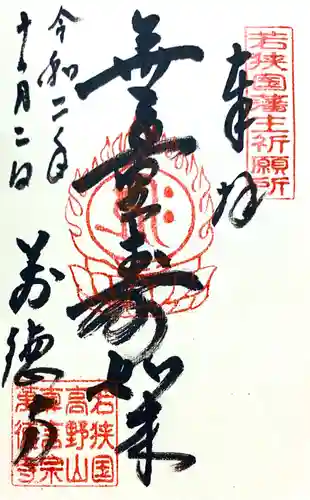 若狭国藩主祈願所
奉拝
無量壽如来
令和二年
十一月二日
萬徳寺
若狭国
高野山
真言宗
萬徳寺